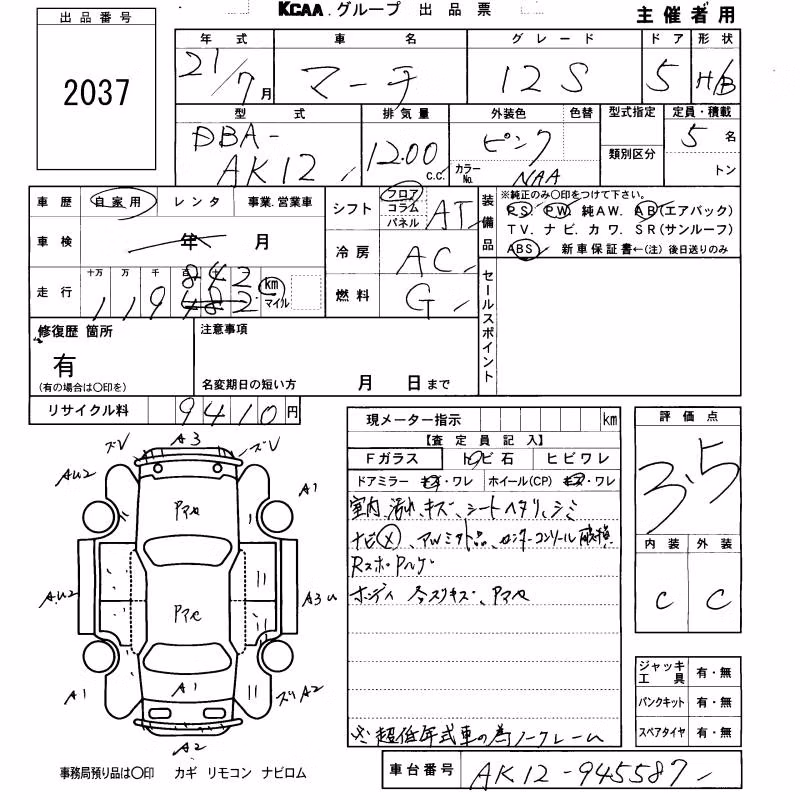 KCAA.グループ 出品票
主催者用
出品番号
2037
年式 車名 グレード ドア 形状
21/7月 マーチ 12S 5 H/B
型式 排気量 外装色 色替 型式指定 定員・積載
DBA-AK12 1200 c.c. ピンク 5名
カラーNo. NAA 類別区分 トン
車歴 自家用 レンタ 事業.営業車
シフト フロア コラム パネル AT
装備品 ※純正のみ〇印をつけて下さい。
PS PW 純AW. AB(エアバック)
TV. ナビ. カワ. SR(サンルーフ)
ABS 新車保証書←(注) 後日送りのみ
車検 年 月
冷房 AC
走行 十万 万 千 百 十
119 842 482 km マイル
燃料 G
セールスポイント
修復歴 箇所
有
(有の場合は〇印を)
注意事項
名変期日の短い方 月 日まで
リサイクル料 9410円
現メーター指示 km
評価点
3.5
【査定員記入】
Fガラス トビ石 ヒビワレ
ドアミラー キズ・ワレ ホイール(CP) キズ・ワレ
室内 汚れ、キズ、シートヘタリ、シミ
ナビ(×)、AW ミナト品、センターコンソール破損
ボディ 今スリキズ、アマセ
※超低年式車の為ノークレーム
内装 外装
C C
ズV A3 ズV
AU2 A1
アマセ
AU2 A3
アマセ
A1 A1 ズリA2
A2
ジャッキ工具 有・無
パンクキット 有・無
スペアタイヤ 有・無
事務局預り品は〇印 カギ リモコン ナビロム
車台番号 AK12-945587